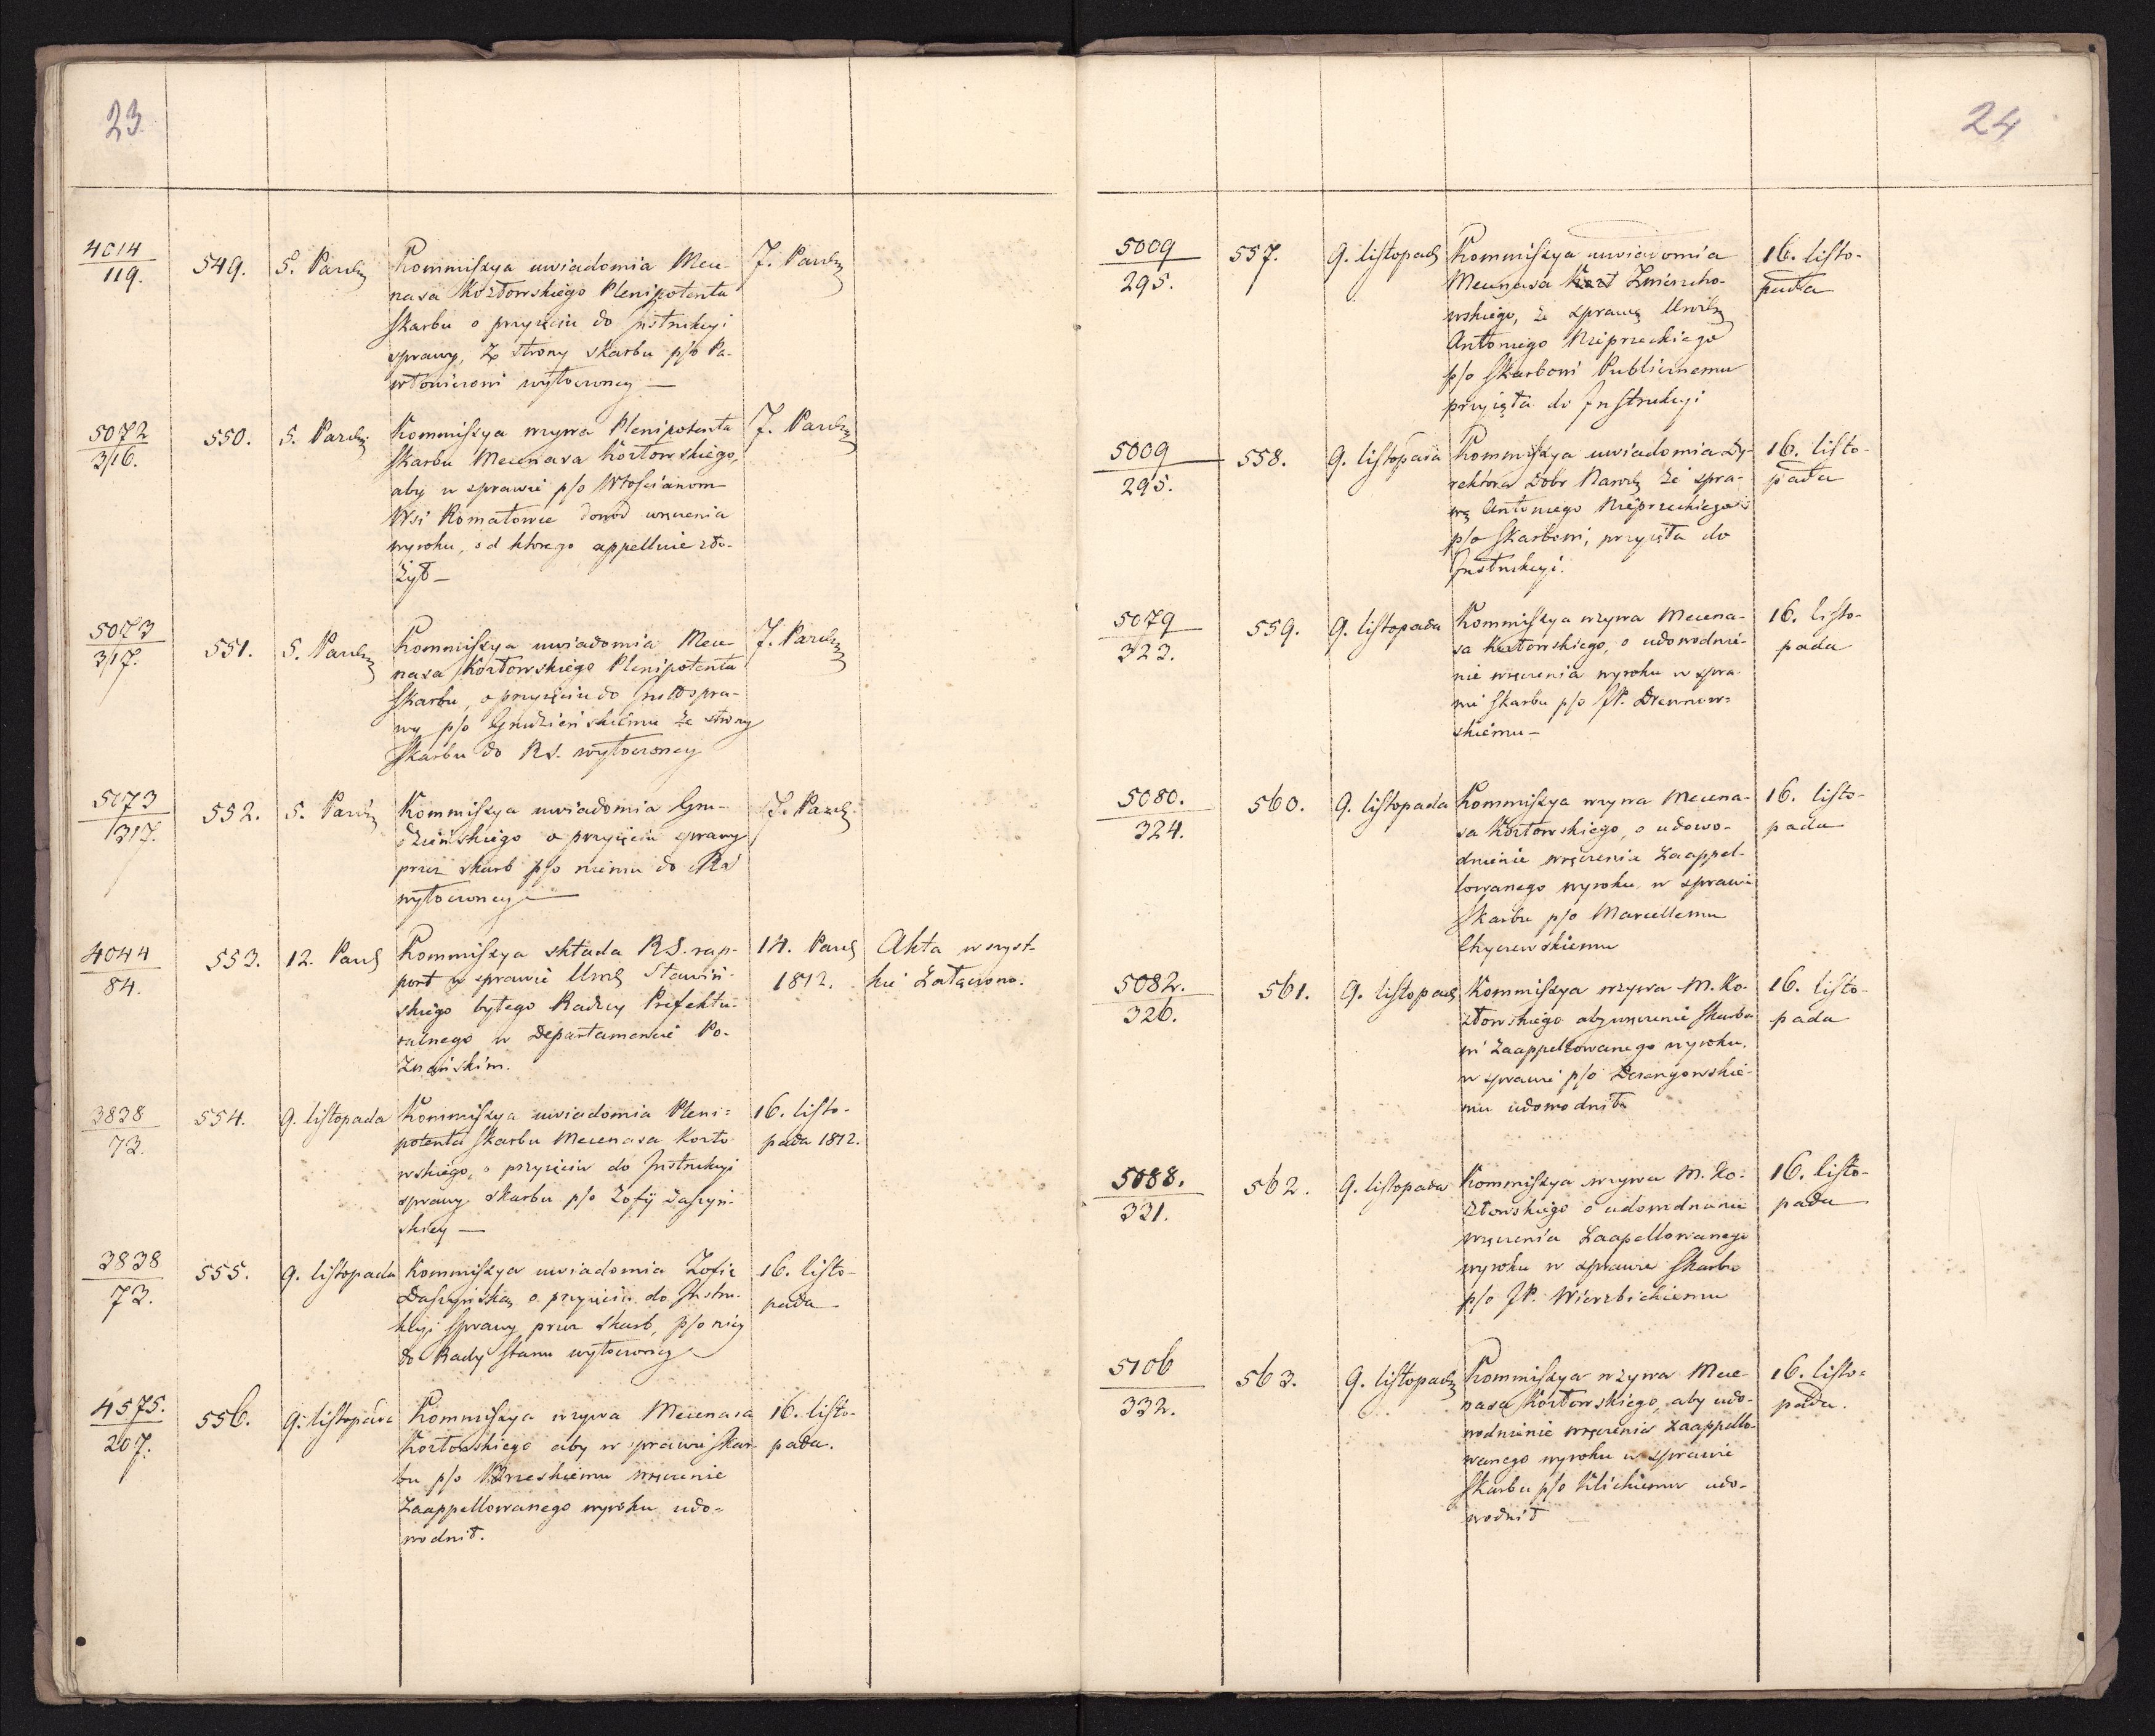 23
4014
119.
549.
5. Paźdz
Kommiſsya uwiadomia Mece-
nasa Kozłowskiego Plenipotenta
Skarbu o przyięciu do Jnstrukcyi
sprawy, Ze strony skarbu p/o Pa-
włowiczowi wytoczoney —
7. Paźdz
5072
316.
550.
5. Paźdz.
Kommiſsya wzywa Plenipotenta
Skarbu Mecenasa Kozłowskiego,
aby w sprawie p/o Włościanom
Wsi Romatowie dowód wręczenia
wyroku, od ktorego appelluie zło-
żył —
7. Paźdz
5073
317.
551.
5. Paźdz
Kommiſsya uwiadomia Mece-
nasa Kozłowskiego Plenipotenta
Skarbu, o przyięciu do Jnst: spra-
wy p/o Grudzieńskiemu Ze strony
Skarbu do RS. wytoczoney
7. Paźdz
5073
317.
552.
5. Paźdz
Kommiſsya uwiadomia Gru-
dzieńskiego o przyięciu sprawy
przez skarb p/o niemu do RS
wytoczoney —
7. Paźdz.
4044
84.
553.
12. Paźd
Kommiſsya składa R.S. rap-
port w sprawie Urod Stawiń-
skiego byłego Radzcy Prefektu-
ralnego w Departamencie Po-
Znańskim.
14. Paźd
1812.
Akta wszyst-
kie Załączono.
3838
73.
554.
9. liſtopada
Kommiſsya uwiadomia Pleni=
potenta Skarbu Mecenasa Kozło-
wskiego, o przyięciu do Jnstrukcyi
sprawy Skarbu p/o Zofij Daſzyń-
skiey —
16. liſto-
pada 1812.
3838
73.
555.
9. liſtopada
Kommiſsya uwiadomia Zofię
Daſzyńską o przyięciu do Jnstru-
kcyi Sprawy przez Skarb, p/o niey
do Rady Stanu wytoczoney
16. liſto-
pada
4575.
207.
556.
9. liſtopada
Kommiſsya wzywa Mecenasa
Kozłowskiego aby w sprawie Skar-
bu p/o Brzeskiemu wręczenie
Zaappellowanego wyroku udo-
wodnił.
16. liſto-
pada.
24
5009
295.
557.
9. liſtopad
Kommiſsya uwiadomia
Mecenasa Zwierzcho-
wskiego, że sprawę Urodz
Antoniego Nieprzeckiego
p/o Skarbowi Publicznemu
przyięta do Jnstrukcyi
16. liſto-
pada
5009
295.
558.
9. liſtopada
Kommiſsya uwiadomia Dy-
rektora Dobr Narod że spra-
wę Antoniego Nieprzeckiego
p/o Skarbowi, przyięta do
Jnstrukcyi.
16. liſto-
pada
5079
323.
559.
9. liſtopada
Kommiſsya wzywa Mecena-
sa Kozłowskiego, o udowodnie-
nie wręczenia wyroku w spra-
wie Skarbu p/o JP. Drewnow-
skiemu —
16. liſto-
pada
5080.
324.
560.
9. liſtopada
Kommiſsya wzywa Mecena-
sa Kozłowskiego, o udowo-
dnienie wręczenia Zaappel-
lowanego wyroku w sprawie
Skarbu p/o Marcellemu
Chyczewskiemu
16. liſto-
pada
5082.
326.
561.
9. liſtopad
Kommiſsya wzywa M. Ko-
złowskiego aby wręczenie Skarbo-
wi Zaappellowanego wyroku.
w sprawie p/o
mu udowodnił
16. liſto-
pada
5088.
331.
562.
9. liſtopada
Kommiſsya wzywa M. Ko-
złowskiego o udowodnienie
wręczenia Zaapellowanego
wyroku w sprawie Skarbu
p/o JP. Wierzbickiemu
16. liſto-
pada
5106
332.
563.
9. liſtopad
Kommiſsya wzywa Mece-
nasa Kozłowskiego, aby udo-
wodnienie wręczenia zaappello-
wanego wyroku w sprawie
Skarbu p/o Klickiemu udo-
wodnił
16. liſto-
pada.